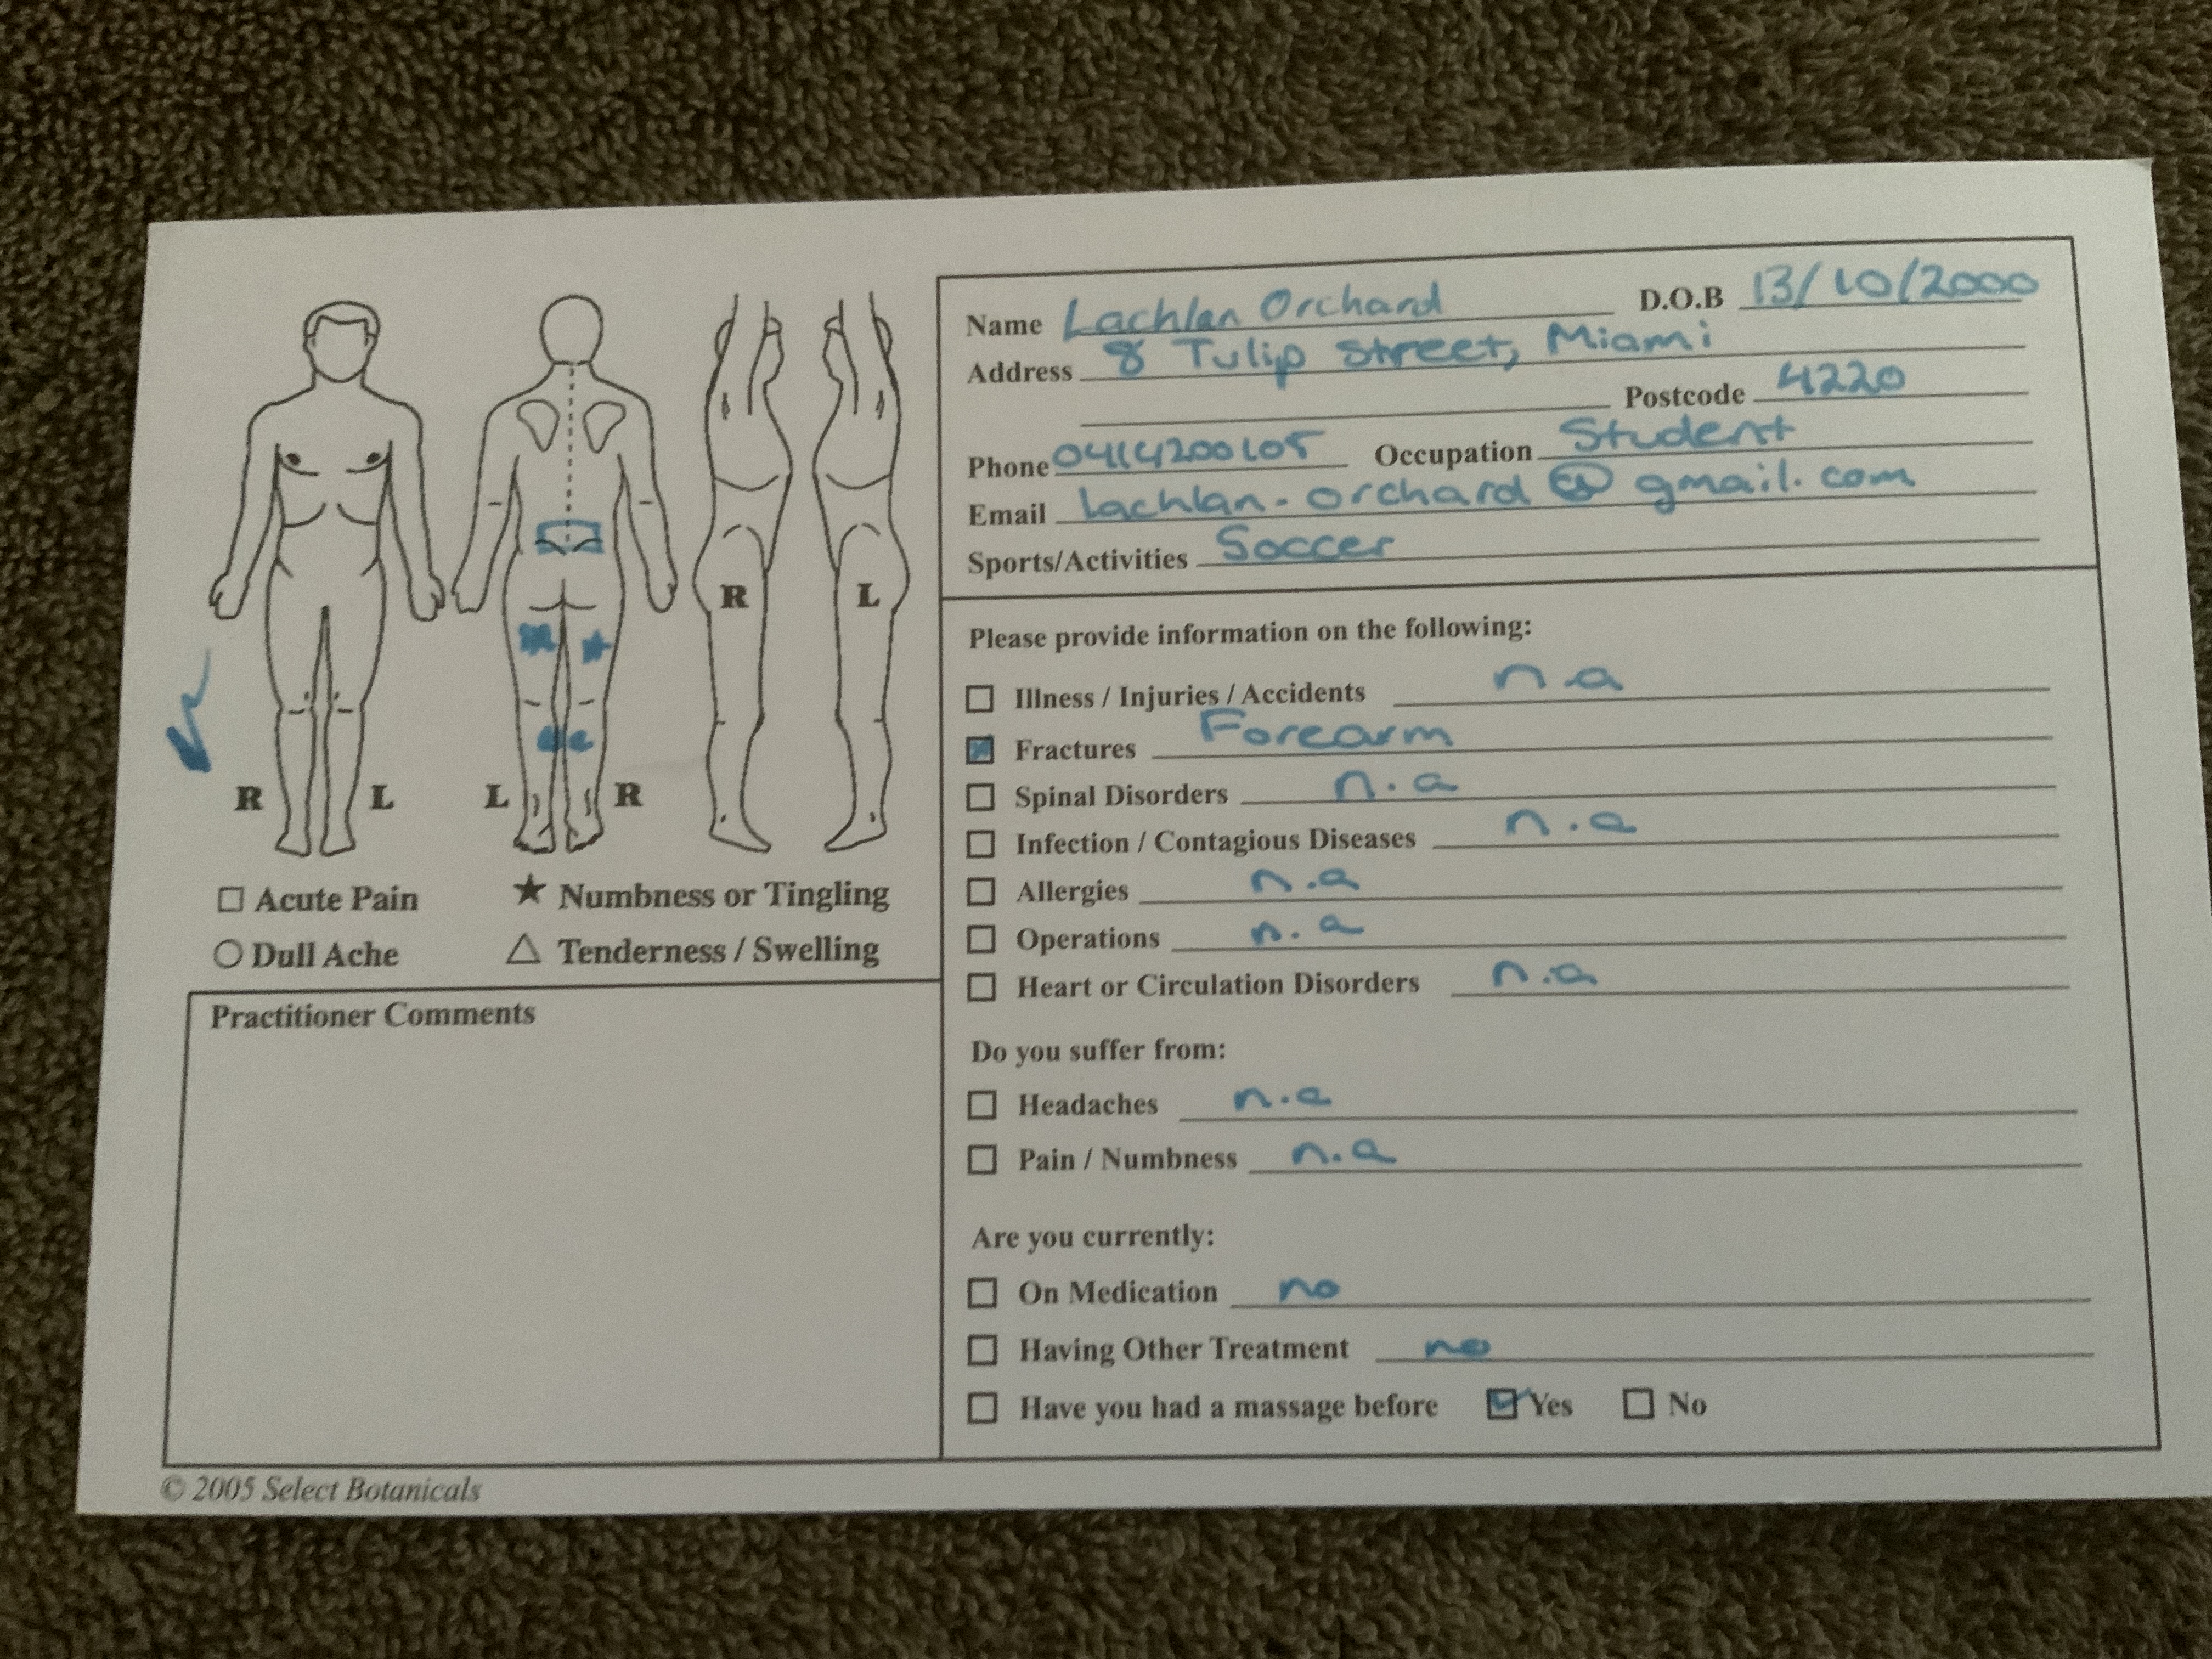 R L L R R L
☐ Acute Pain ★ Numbness or Tingling
○ Dull Ache △ Tenderness / Swelling
Practitioner Comments
© 2005 Select Botanicals
Name Lachlan Orchard D.O.B 13/10/2000
Address 8 Tulip Street, Miami
Postcode 4220
Phone 0414200105 Occupation Student
Email lachlan-orchard@gmail.com
Sports/Activities Soccer
Please provide information on the following:
☐ Illness / Injuries / Accidents n.a
☒ Fractures Forearm
☐ Spinal Disorders n.a
☐ Infection / Contagious Diseases n.a
☐ Allergies n.a
☐ Operations n.a
☐ Heart or Circulation Disorders n.a
Do you suffer from:
☐ Headaches n.a
☐ Pain / Numbness n.a
Are you currently:
☐ On Medication no
☐ Having Other Treatment no
☐ Have you had a massage before ☑ Yes ☐ No